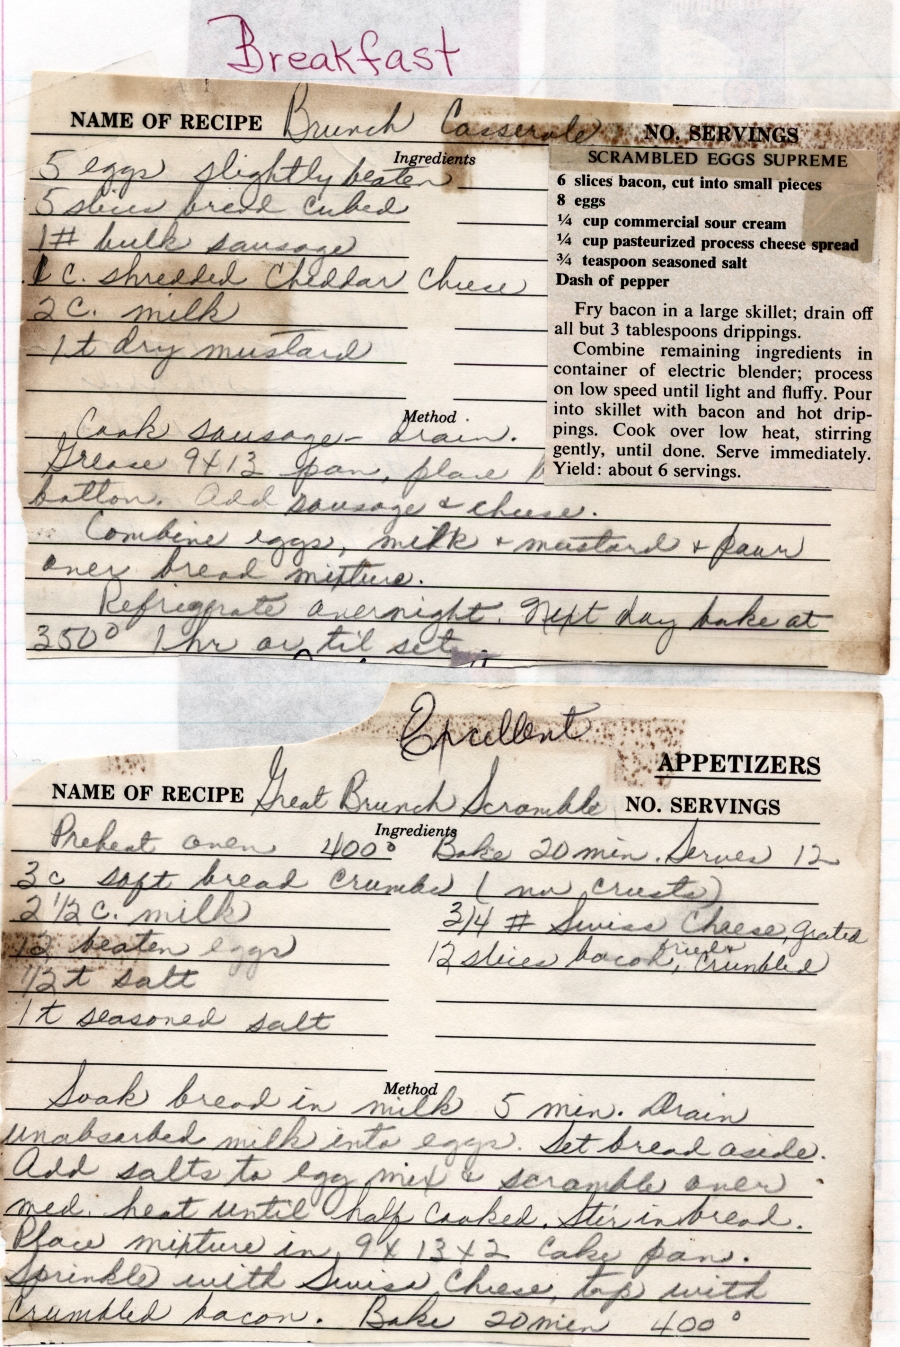 Breakfast
NAME OF RECIPE Brunch Casserole NO. SERVINGS
Ingredients
5 eggs slightly beaten
5 slices bread cubed
1# bulk sausage
1 c. shredded Cheddar Cheese
2 c. milk
1 t dry mustard
Method
Cook sausage - drain.
Grease 9x13 pan, place
bottom. Add sausage & cheese.
Combine eggs, milk + mustard + pour
over bread mixture.
Refrigerate overnight. Next day bake at
350° 1 hr or til set
SCRAMBLED EGGS SUPREME
6 slices bacon, cut into small pieces
8 eggs
¼ cup commercial sour cream
¼ cup pasteurized process cheese spread
¾ teaspoon seasoned salt
Dash of pepper
Fry bacon in a large skillet; drain off
all but 3 tablespoons drippings.
Combine remaining ingredients in
container of electric blender; process
on low speed until light and fluffy. Pour
into skillet with bacon and hot drip-
pings. Cook over low heat, stirring
gently, until done. Serve immediately.
Yield: about 6 servings.
Excellent
APPETIZERS
NAME OF RECIPE Great Brunch Scramble NO. SERVINGS
Ingredients
Preheat oven 400° Bake 20 min. Serves 12
3 c soft bread crumbs (no crusts)
2 1/2 c. milk
12 beaten eggs
1/2 t salt
1 t seasoned salt
3/4 # Swiss Cheese, grated
12 slices bacon, fried + crumbled
Method
Soak bread in milk 5 min. Drain
unabsorbed milk into eggs. Set bread aside.
Add salts to egg mix & scramble over
med. heat until half cooked. Stir in bread.
Place mixture in 9x13x2 cake pan.
Sprinkle with Swiss Cheese, top with
crumbled bacon. Bake 20 min 400°